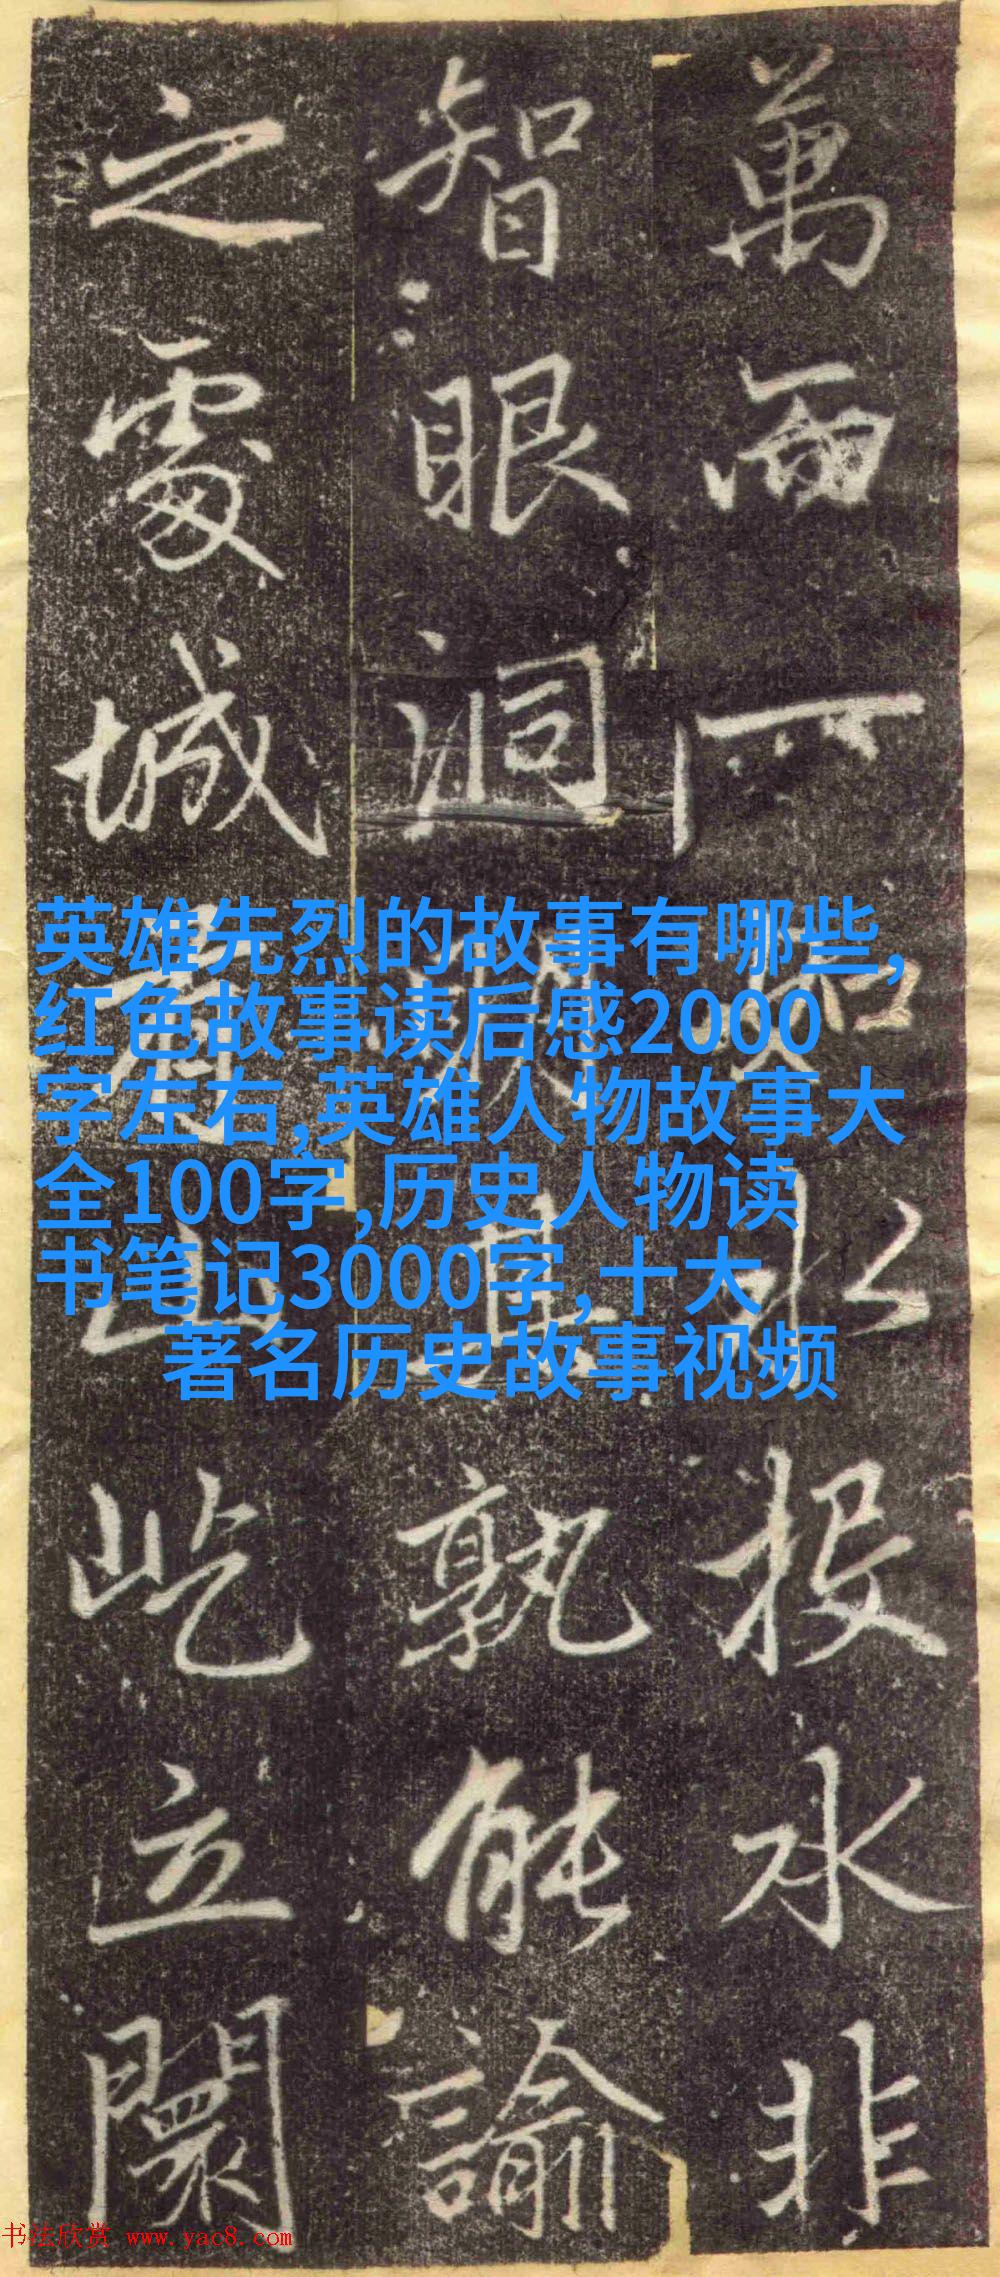 萬而一如水投水非
智眼洞其孰能諭
之處城山屹立闤
英雄先烈的故事有哪些,
红色故事读后感2000
字左右,英雄人物故事大
全100字,历史人物读
书笔记3000字,十大
著名历史故事视频
书法欣赏 www.yac8.com